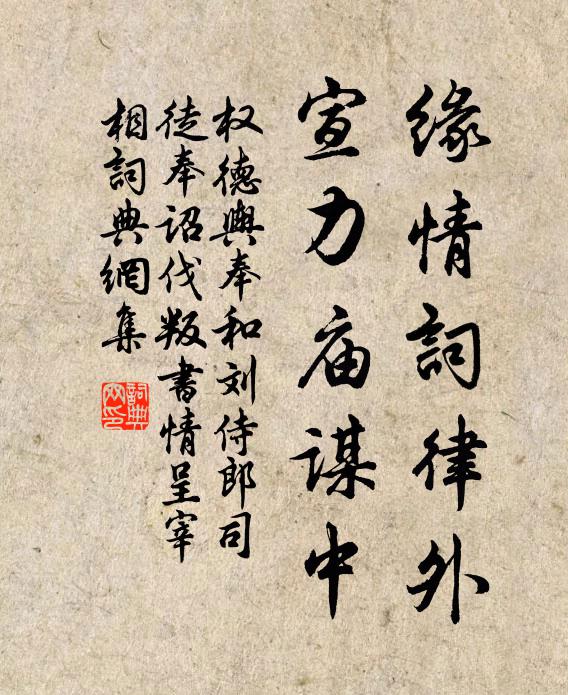 缘情詞律外
宣力庙谋中
权德輿奉和刘侍郎司
徒奉诏伐叛書情呈宰
相詞典網集
詞典
网印